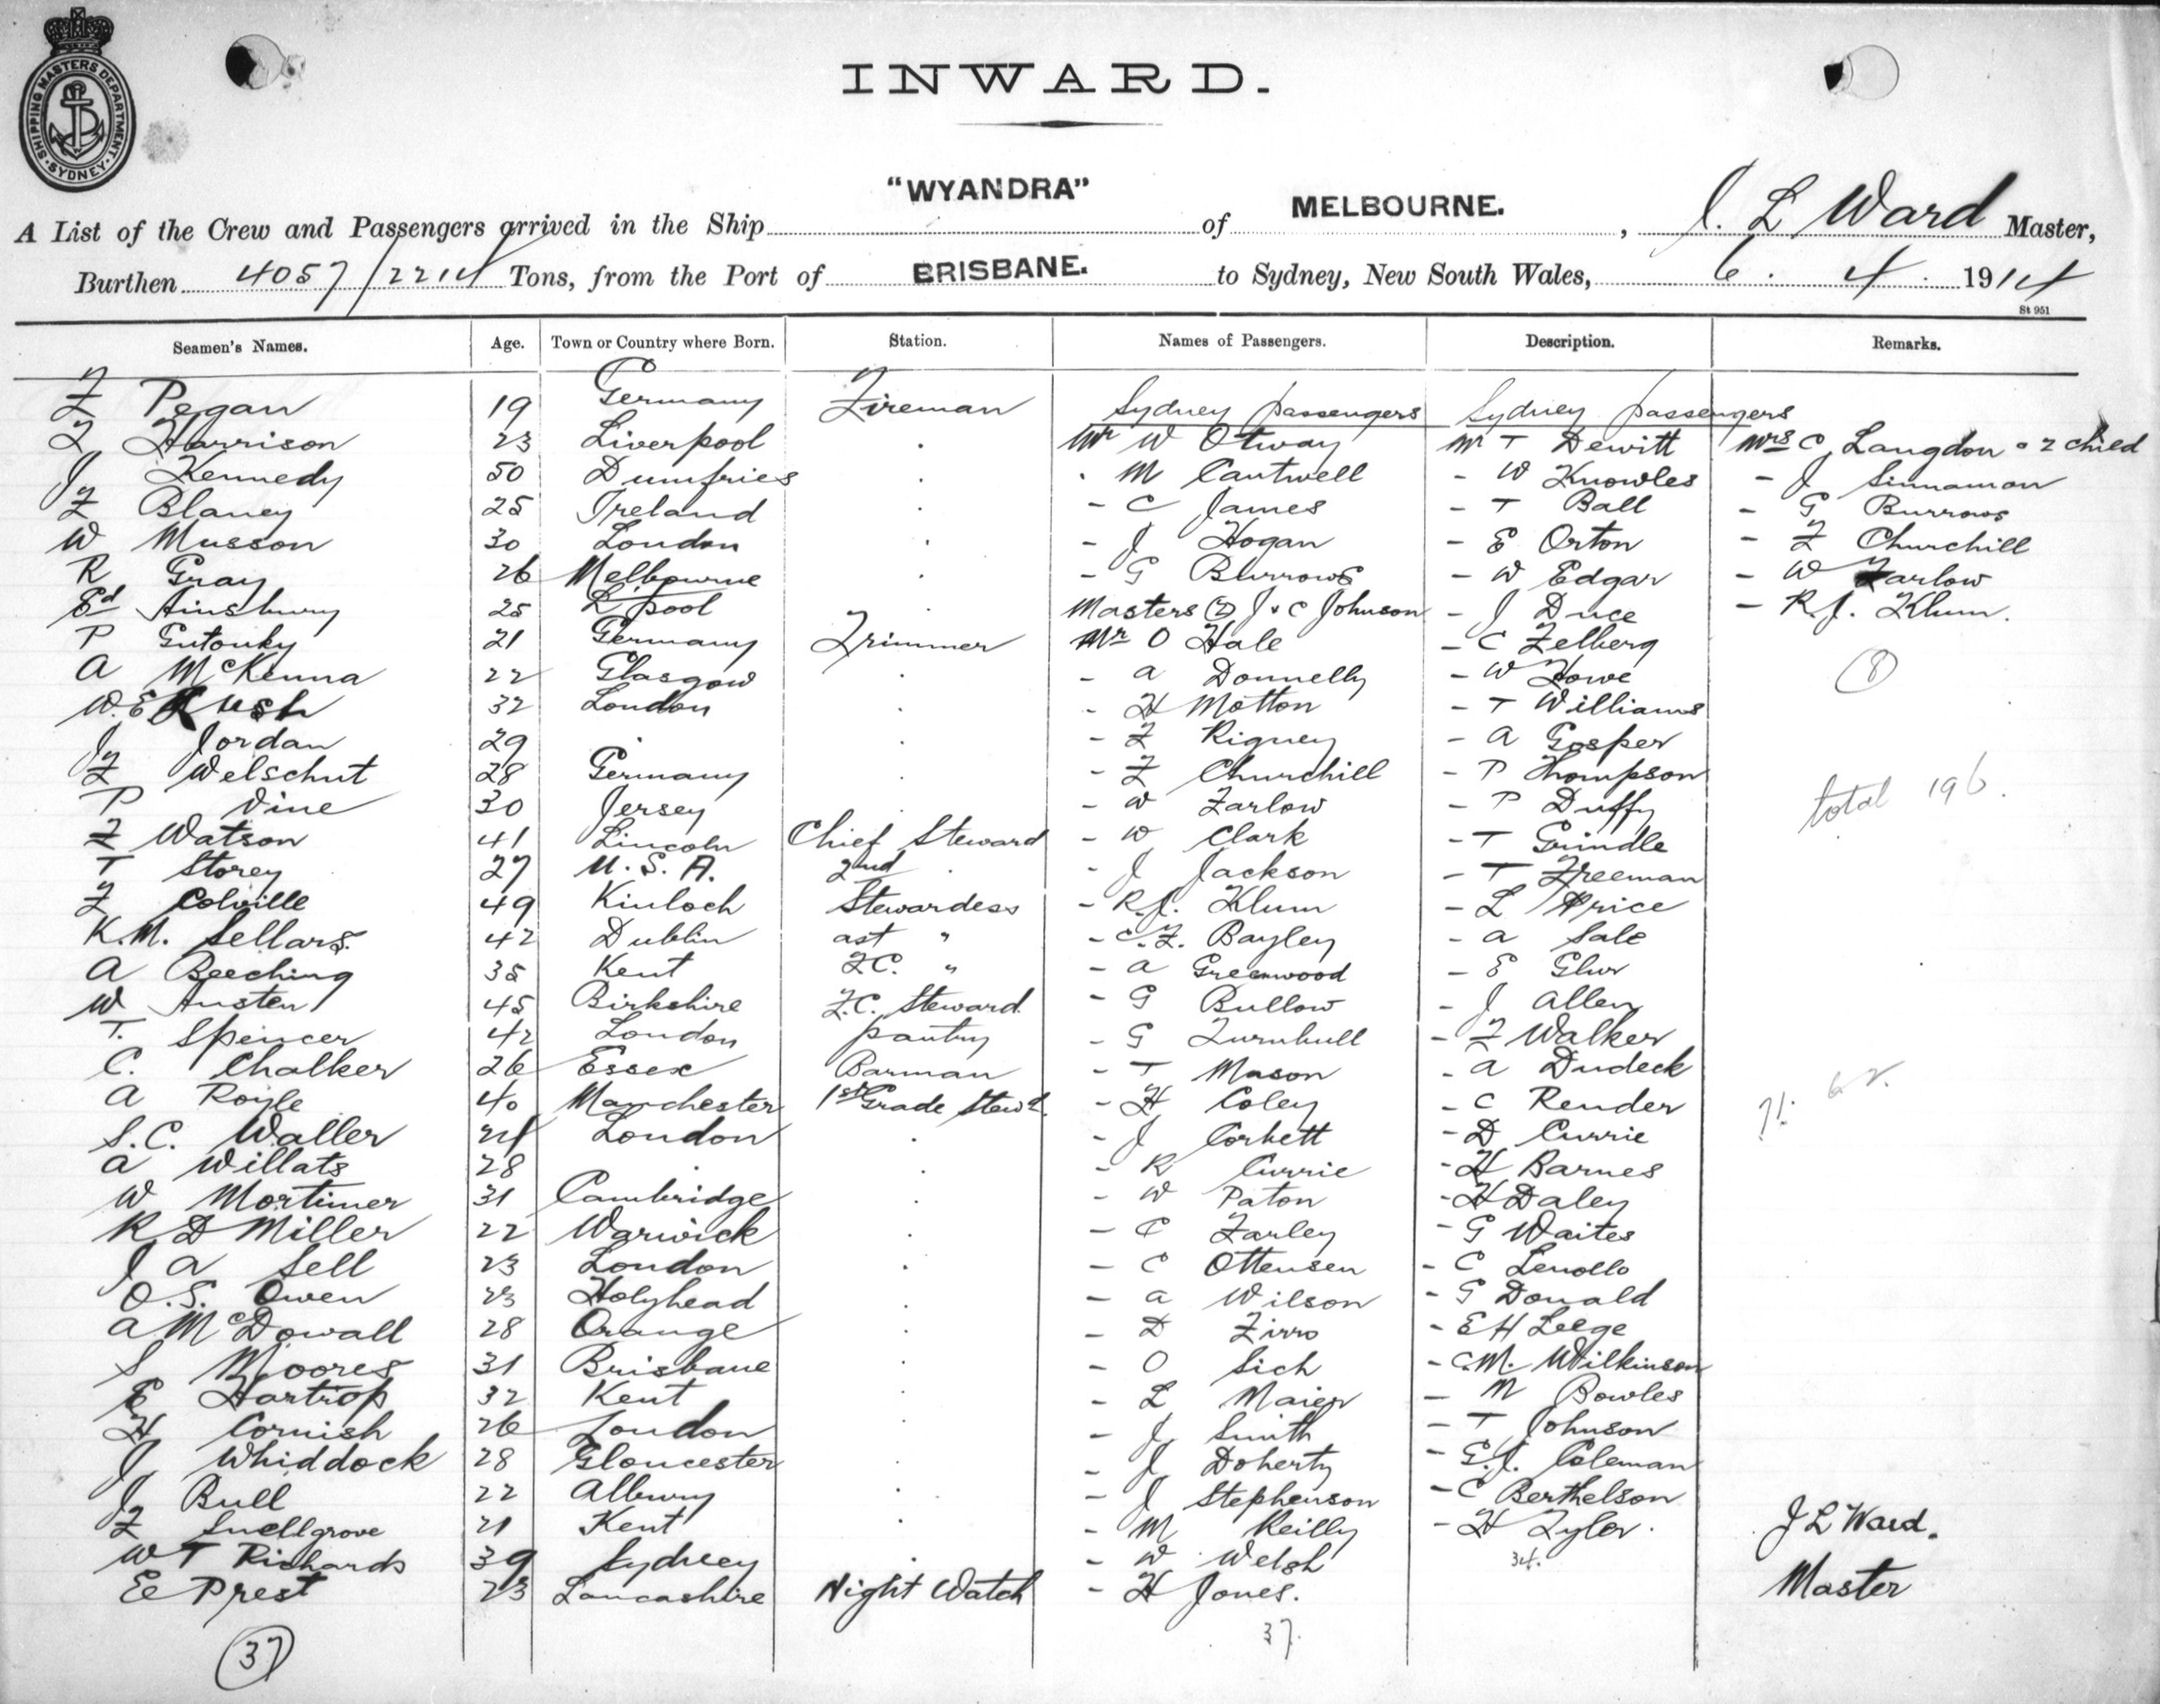 SHIPPING MASTERS DEPARTMENT. SYDNEY.
INWARD.
A List of the Crew and Passengers arrived in the Ship "WYANDRA" of MELBOURNE. , J. L Ward Master,
Burthen 4057/2214 Tons, from the Port of BRISBANE. to Sydney, New South Wales, 6. 4. 1914
St 951
Seamen's Names. Age. Town or Country where Born. Station. Names of Passengers. Description. Remarks.
F Pegan 19 Germany Fireman Sydney passengers Sydney passengers
F Harrison 23 Liverpool . Mr W Otway Mr T Dewitt Mrs C Langdon - 2 child
J Kennedy 50 Dumfries . . M Cantwell - W Knowles - J Sinnamon
F Blaney 25 Ireland . - C James - T Ball - G Burrows
W Musson 30 London . - J Hogan - E Orton - F Churchill
R Gray 26 Melbourne . - G Burrows - W Edgar - W Farlow
Ed Ainsbury 25 L'pool . Masters J & C Johnson - J Duce - R. J. Klum.
P Gutouky 21 Germany Trimmer Mr O Hale - C Zelberg
A McKenna 22 Glasgow . - A Donnelly - W Howe (8)
W. E Rush 32 London . - H Motton - T Williams
J Jordan 29 . . - F Rigney - A Gosper
F Welschut 28 Germany . - F Churchill - P Thompson
P Vine 30 Jersey . - W Farlow - P Duffy total 196.
F Watson 41 Lincoln Chief Steward - W Clark - T Grindle
T Storey 27 U. S. A. 2nd . - J Jackson - T Freeman
F Colville 49 Kinloch Stewardess - R. J. Klum - L Price
K. M. Sellars. 42 Dublin ast " - C. F. Bayley - A Sale
A Beeching 35 Kent F.C. " - A Greenwood - E
W Austen 45 Birkshire F.C. Steward - G Bullow - J Allen
T. Spencer 42 London pantry - G Turnbull - F Walker
C. Chalker 26 Essex Barman - T Mason - A Dudeck
A Royle 40 Manchester 1st Grade Stewd. - H Coley - C Render 71. 62.
S. C. Waller 24 London . - J Corbett - D Currie
A Willats 28 . . - R Currie - H Barnes
W Mortimer 31 Cambridge . - W Paton - H Daley
R D Miller 22 Warwick . - C Farley - G Waites
J A Sell 23 London . - C Ottensen - C Lenollo
O. S. Owen 23 Holyhead . - A Wilson - G Donald
A McDowall 28 Orange . - D Firro - E H Leege
S Moores 31 Brisbane . - O Sich - C. M. Wilkinson
E Hartrop 32 Kent . - L Maier - M Bowles
H Cornish 26 London . - J Smith - T Johnson
J Whiddock 28 Gloucester . - J Doherty - E. J. Coleman
J Bull 22 Albury . - J Stephenson - C Berthelson
F Snellgrove 21 Kent . - M Reilly - H Tyler. J L Ward.
W T Richards 39 Sydney . - W Welsh 34.
E Prest 23 Lancashire Night Watch - H Jones. Master
(37) 37.